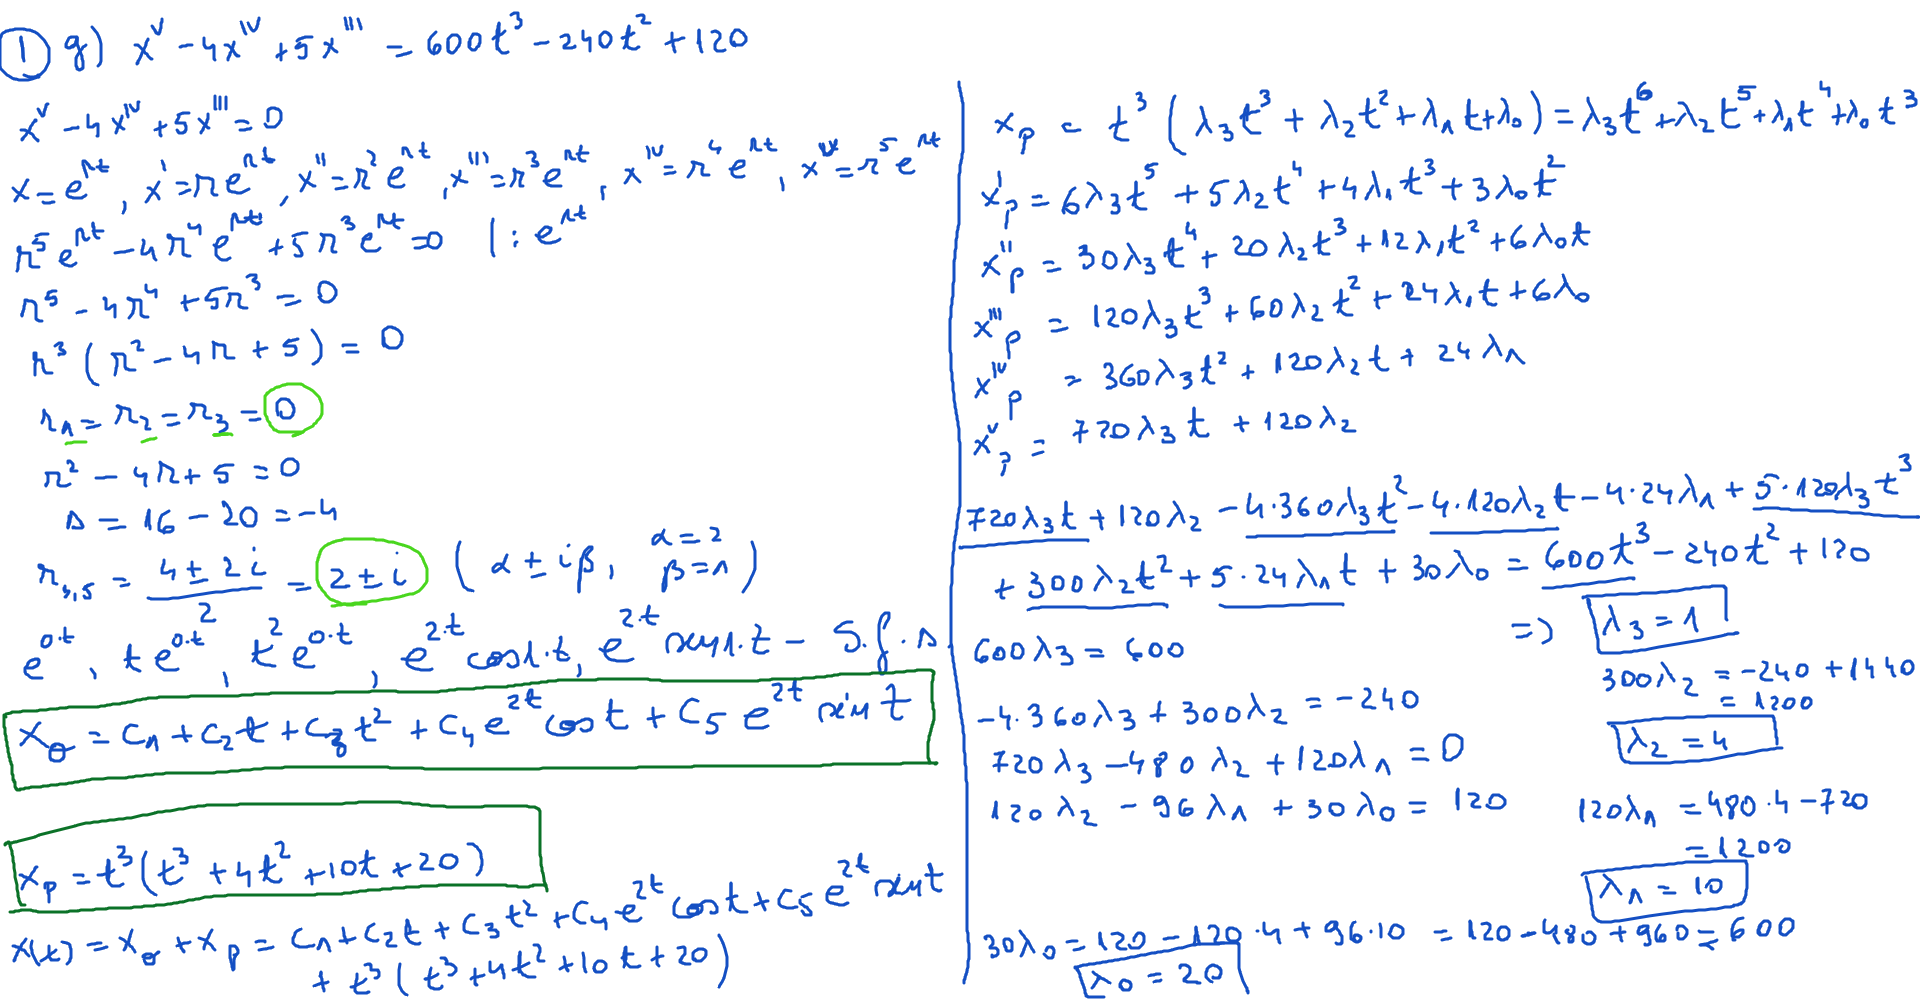 ① g) x^V - 4x^IV + 5x^III = 600t^3 - 240t^2 + 120
x^V - 4x^IV + 5x^III = 0
x = e^rt, x' = re^rt, x'' = r^2 e^rt, x''' = r^3 e^rt, x^IV = r^4 e^rt, x^V = r^5 e^rt
r^5 e^rt - 4r^4 e^rt + 5r^3 e^rt = 0 | : e^rt
r^5 - 4r^4 + 5r^3 = 0
r^3 (r^2 - 4r + 5) = 0
r_1 = r_2 = r_3 = 0
r^2 - 4r + 5 = 0
Δ = 16 - 20 = -4
r_4,5 = (4 ± 2i)/2 = 2 ± i (α ± iβ, α = 2 β = 1)
e^0·t, te^0·t, t^2 e^0·t, e^2·t cos1·t, e^2·t sin1·t - s.f.s.
x_o = C_1 + C_2 t + C_3 t^2 + C_4 e^2t cost + C_5 e^2t sin t
x_p = t^3 (t^3 + 4t^2 + 10t + 20)
x(t) = x_o + x_p = C_1 + C_2 t + C_3 t^2 + C_4 e^2t cost + C_5 e^2t sint
+ t^3 (t^3 + 4t^2 + 10t + 20)
x_p = t^3 (λ_3 t^3 + λ_2 t^2 + λ_1 t + λ_0) = λ_3 t^6 + λ_2 t^5 + λ_1 t^4 + λ_0 t^3
x'_p = 6λ_3 t^5 + 5λ_2 t^4 + 4λ_1 t^3 + 3λ_0 t^2
x''_p = 30λ_3 t^4 + 20λ_2 t^3 + 12λ_1 t^2 + 6λ_0 t
x'''_p = 120λ_3 t^3 + 60λ_2 t^2 + 24λ_1 t + 6λ_0
x^IV_p = 360λ_3 t^2 + 120λ_2 t + 24λ_1
x^V_p = 720λ_3 t + 120λ_2
720λ_3 t + 120λ_2 - 4·360λ_3 t^2 - 4·120λ_2 t - 4·24λ_1 + 5·120λ_3 t^3
+ 300λ_2 t^2 + 5·24λ_1 t + 30λ_0 = 600t^3 - 240t^2 + 120
600λ_3 = 600 => λ_3 = 1
-4·360λ_3 + 300λ_2 = -240
300λ_2 = -240 + 1440
= 1200
λ_2 = 4
720λ_3 - 480λ_2 + 120λ_1 = 0
120λ_2 - 96λ_1 + 30λ_0 = 120
120λ_1 = 480·4 - 720
= 1200
λ_1 = 10
30λ_0 = 120 - 120·4 + 96·10 = 120 - 480 + 960 = 600
λ_0 = 20